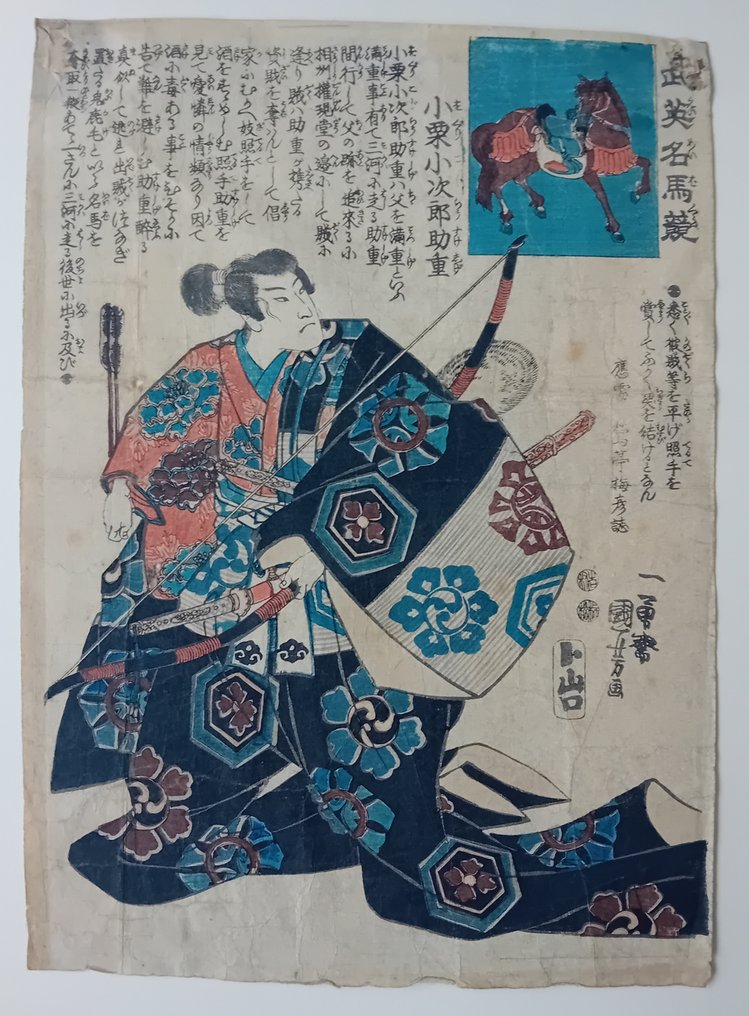 武英名馬競
小栗小次郎助重
小栗小次郎助重ハ父を満重といふ
満重事有て三河に走る助重
間行して父の跡を追来る小
相州權現堂の邊小して賊小
逢り賊ハ助重が携さる
資財を奪んとして倡
家小むかへ妓照手をして
酒をすゝめしむ照手助重を
見て愛憐の情頻なり因て
酒小毒ある事をひそか小
告て難を避しむ助重醉る
真似して逃れ出賊がつなぎ
置たる鬼鹿毛といへる名馬を
一さん小三河小走る後世小出る小及び
悉く彼賊等を平げ照手を
賞してふかく契を結けるとなん
應需
山亭梅彦誌
一勇齋
國芳画
山口